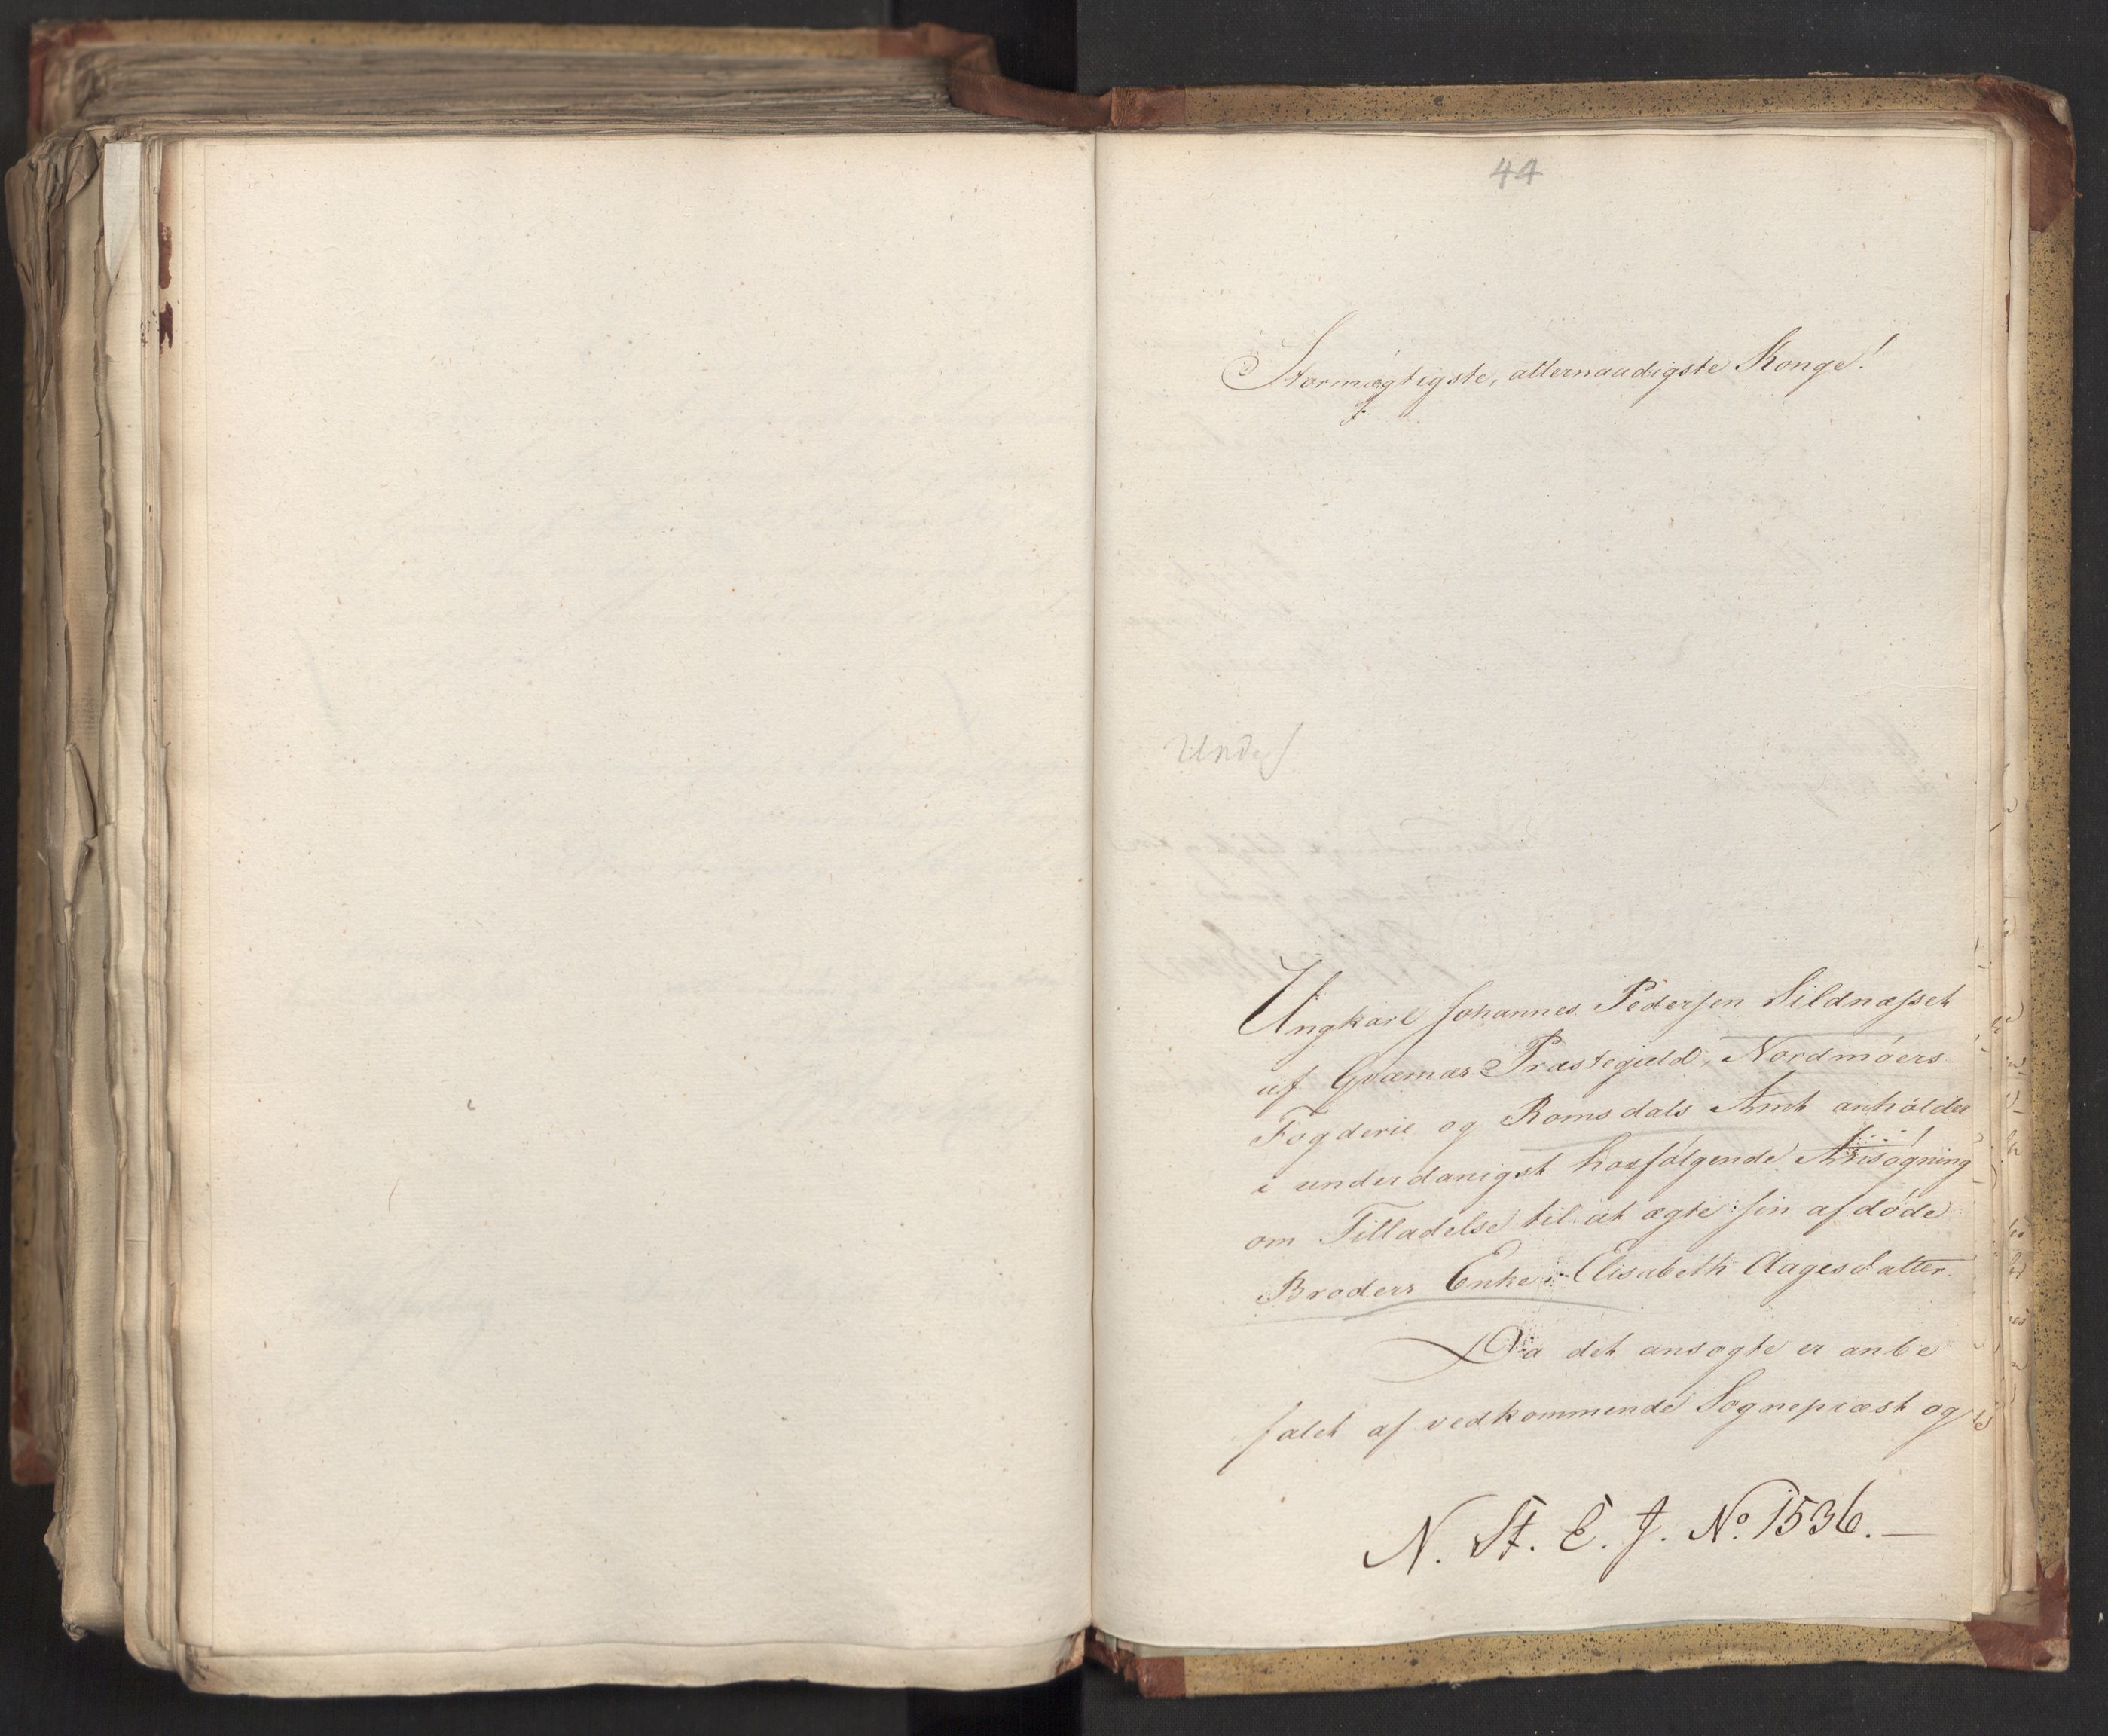 44
Stormægtigste, allernaadigste Konge!
Ungkarl Johannes Pedersen Sildnæsset
af Qværnæs Præstegield, Nordmöers
Fogderie og Romsdals Amt anholder
i underdanigst hosfølgende Ansøgning
om Tilladelse til at ægte sin afdøde
Broders Enke Elisabeth Aagesdatter.
Da det ansøgte er anbe
falet af vedkommende Sognepræst og
N. St. E. J. No. 1536.—